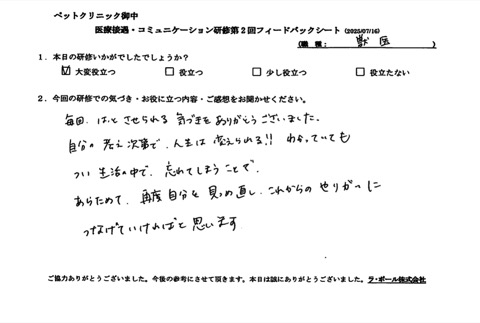 ペットクリニック御中
医療接遇・コミュニケーション研修第2回フィードバックシート (2025/07/16)
(職 種: 獣医 )
1．本日の研修いかがでしたでしょうか？
☑ 大変役立つ □ 役立つ □ 少し役立つ □ 役立たない
2．今回の研修での気づき・お役に立つ内容・ご感想をお聞かせください。
毎回、はっとさせられる気づきをありがとうございました。
自分の考え次第で、人生は変えられる!! わかっていても
つい生活の中で、忘れてしまうことで、
あらためて、再度自分を見つめ直し、これからのやりがいに
つなげていければと思います
ご協力ありがとうございました。今後の参考にさせて頂きます。本日は誠にありがとうございました。ラ・ポール株式会社